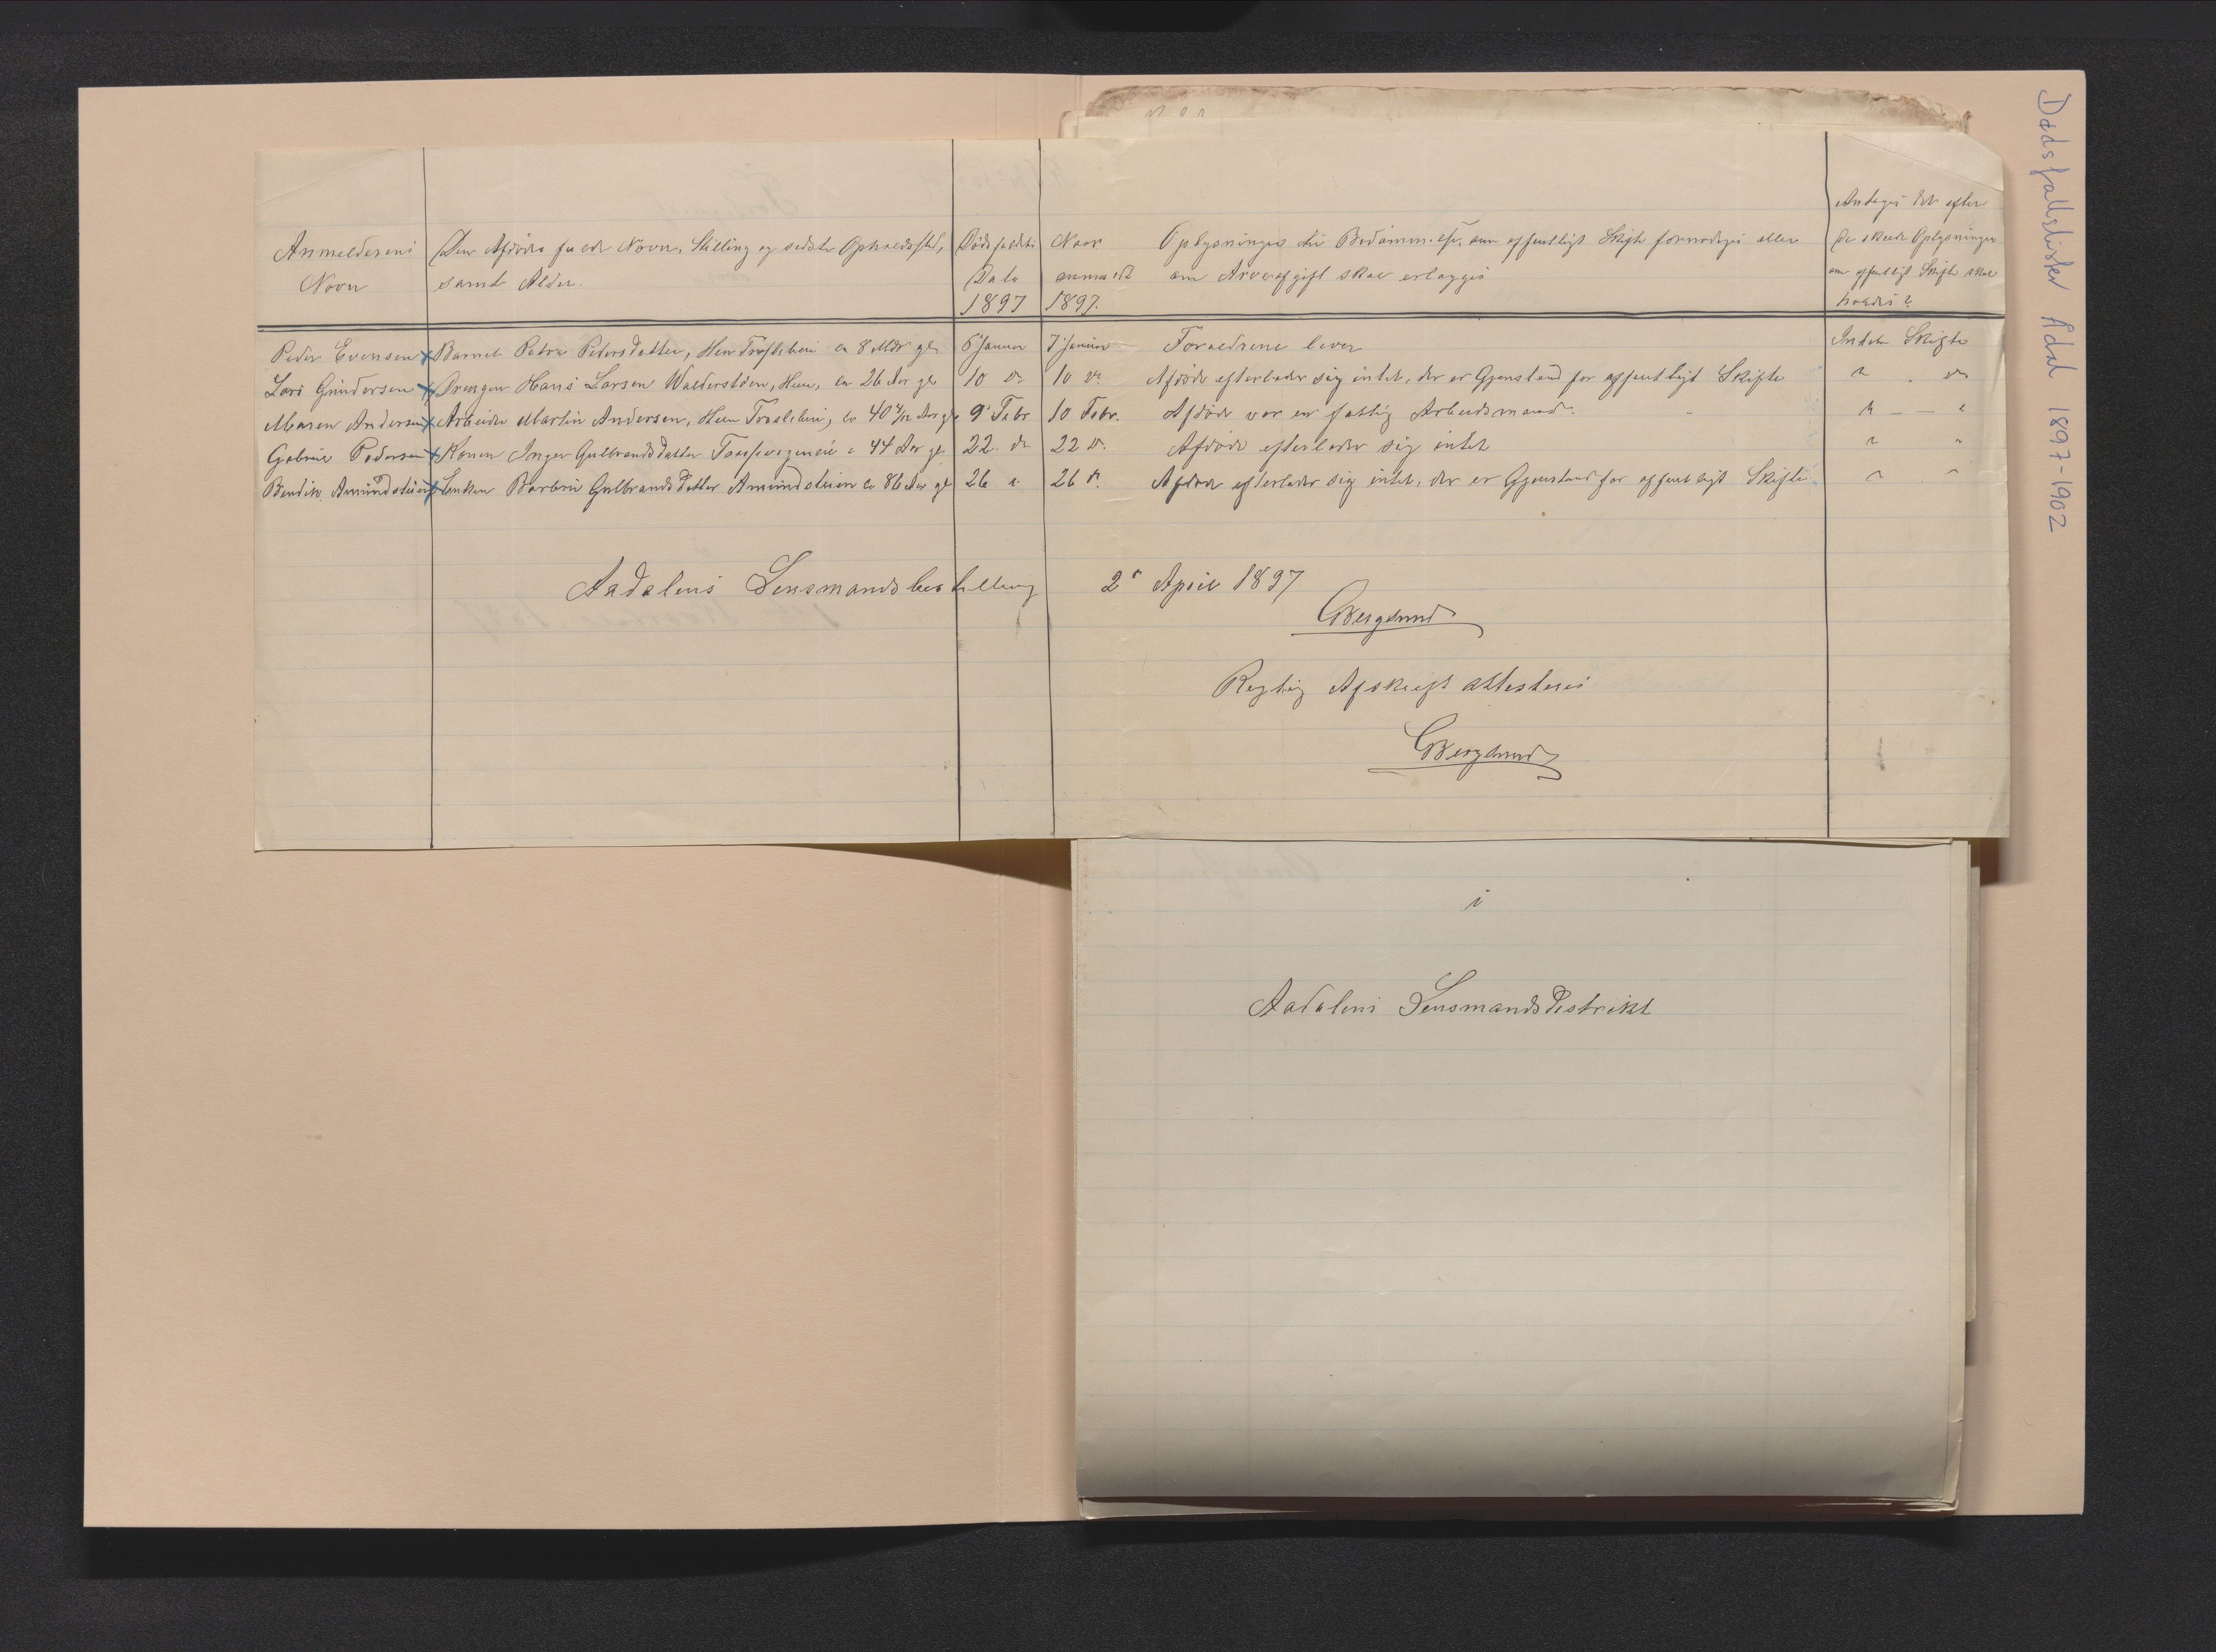 Dødsfallslister Ådal 1897-1902
Anmelderens Navn
Den Afdødes fulde Navn, Stilling og sidste Opholdssted, samt Alder.
Dødsfaldets Dato 1897
Naar anmeldt 1897.
Oplysninger til Bedømmelse, om offentligt Skifte fornødiges eller om Arveafgift skal erlægges
Antages det efter de skeede Oplysninger om offentligt Skifte skal holdes?
Peder Evensen x Barnet Petra Petersdatter, Hen 8 Mdr gl 6 Januar 7 Januar Forældrene lever Intet Skifte
Lars Gundersen x Drengen Hans Larsen Hen, 26 Aar gl 10 do 10 do Afdøde efterlader sig intet, der er Gjenstand for offentligt Skifte " do
Maren Andersen x Arbeider Martin Andersen, Hen 40 Aar gl 9 Febr 10 Febr. Afdøde var en fattig Arbeidsmand. " "
Gabriel Pedersen x Konen Inger Gulbrandsdatter 44 Aar gl 22. do 22 do Afdøde efterlader sig intet " "
Bendik Amundsteien x Enken Barbro Gulbrandsdatter Amundsteien 86 Aar gl 26 " 26 do Afdøde efterlader sig intet, der er Gjenstand for offentligt Skifte " "
Aadalens Lensmandsbestilling 2 April 1897
Bergsund
Rigtig Afskrift attesteres
Bergsund
i
Aadalens Lensmandsdistrikt